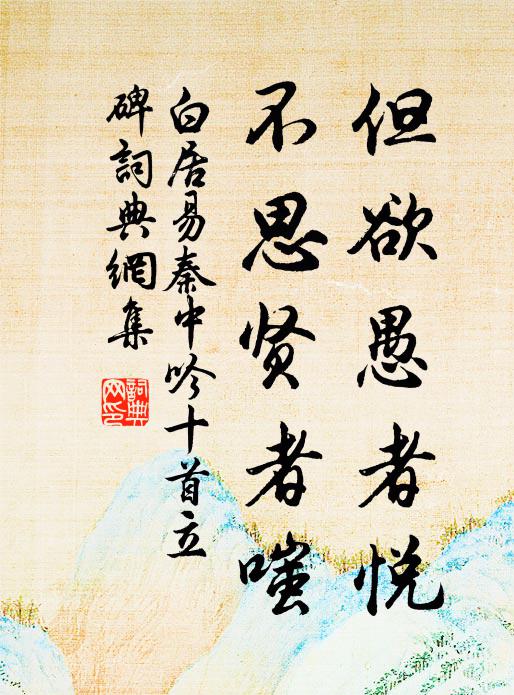 但欲愚者悦
不思贤者嗤
白居易秦中吟十首立
碑詞典網集
詞典网印